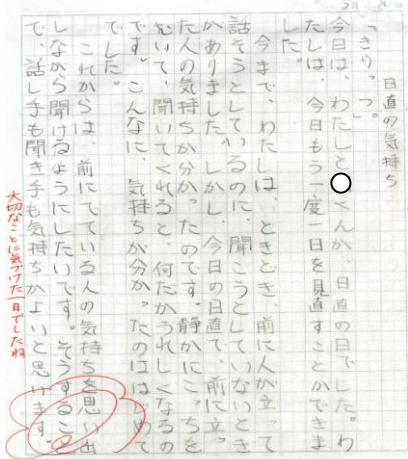 日直の気持ち
「きりっつ。」
今日は、わたしと○くんが、日直の日でした。わ
たしは、今日もう一度一日を見直すことができま
した。
今まで、わたしは、ときどき、前に人が立って
話そうとしているのに、聞こうとしていないとき
がありました。しかし、今日の日直で、前に立っ
た人の気持ちが分かったのです。静かにこっちを
むいて、聞いてくれると、何だかうれしくなるの
です。こんなに、気持ちが分かったのははじめて
でした。
これからは、前にでている人の気持ちを思い出
しながら聞けるようにしたいです。そうすること
で、話し手も聞き手も気持ちがよいと思います。
大切なことに気づけた一日でしたね